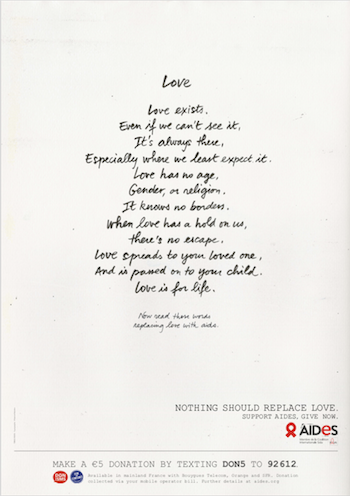 Love
Love exists.
Even if we can't see it,
It's always there,
Especially where we least expect it.
Love has no age,
Gender, or religion.
It knows no borders.
When love has a hold on us,
there's no escape.
Love spreads to your loved one,
And is passed on to your child.
Love is for life.
Now read these words
replacing love with aids.
NOTHING SHOULD REPLACE LOVE.
SUPPORT AIDES, GIVE NOW.
AIDES
MAKE A €5 DONATION BY TEXTING DON5 TO 92612.
Available in mainland France with Bouygues Telecom, Orange and SFR. Donation
collected via your mobile operator bill. Further details at aides.org